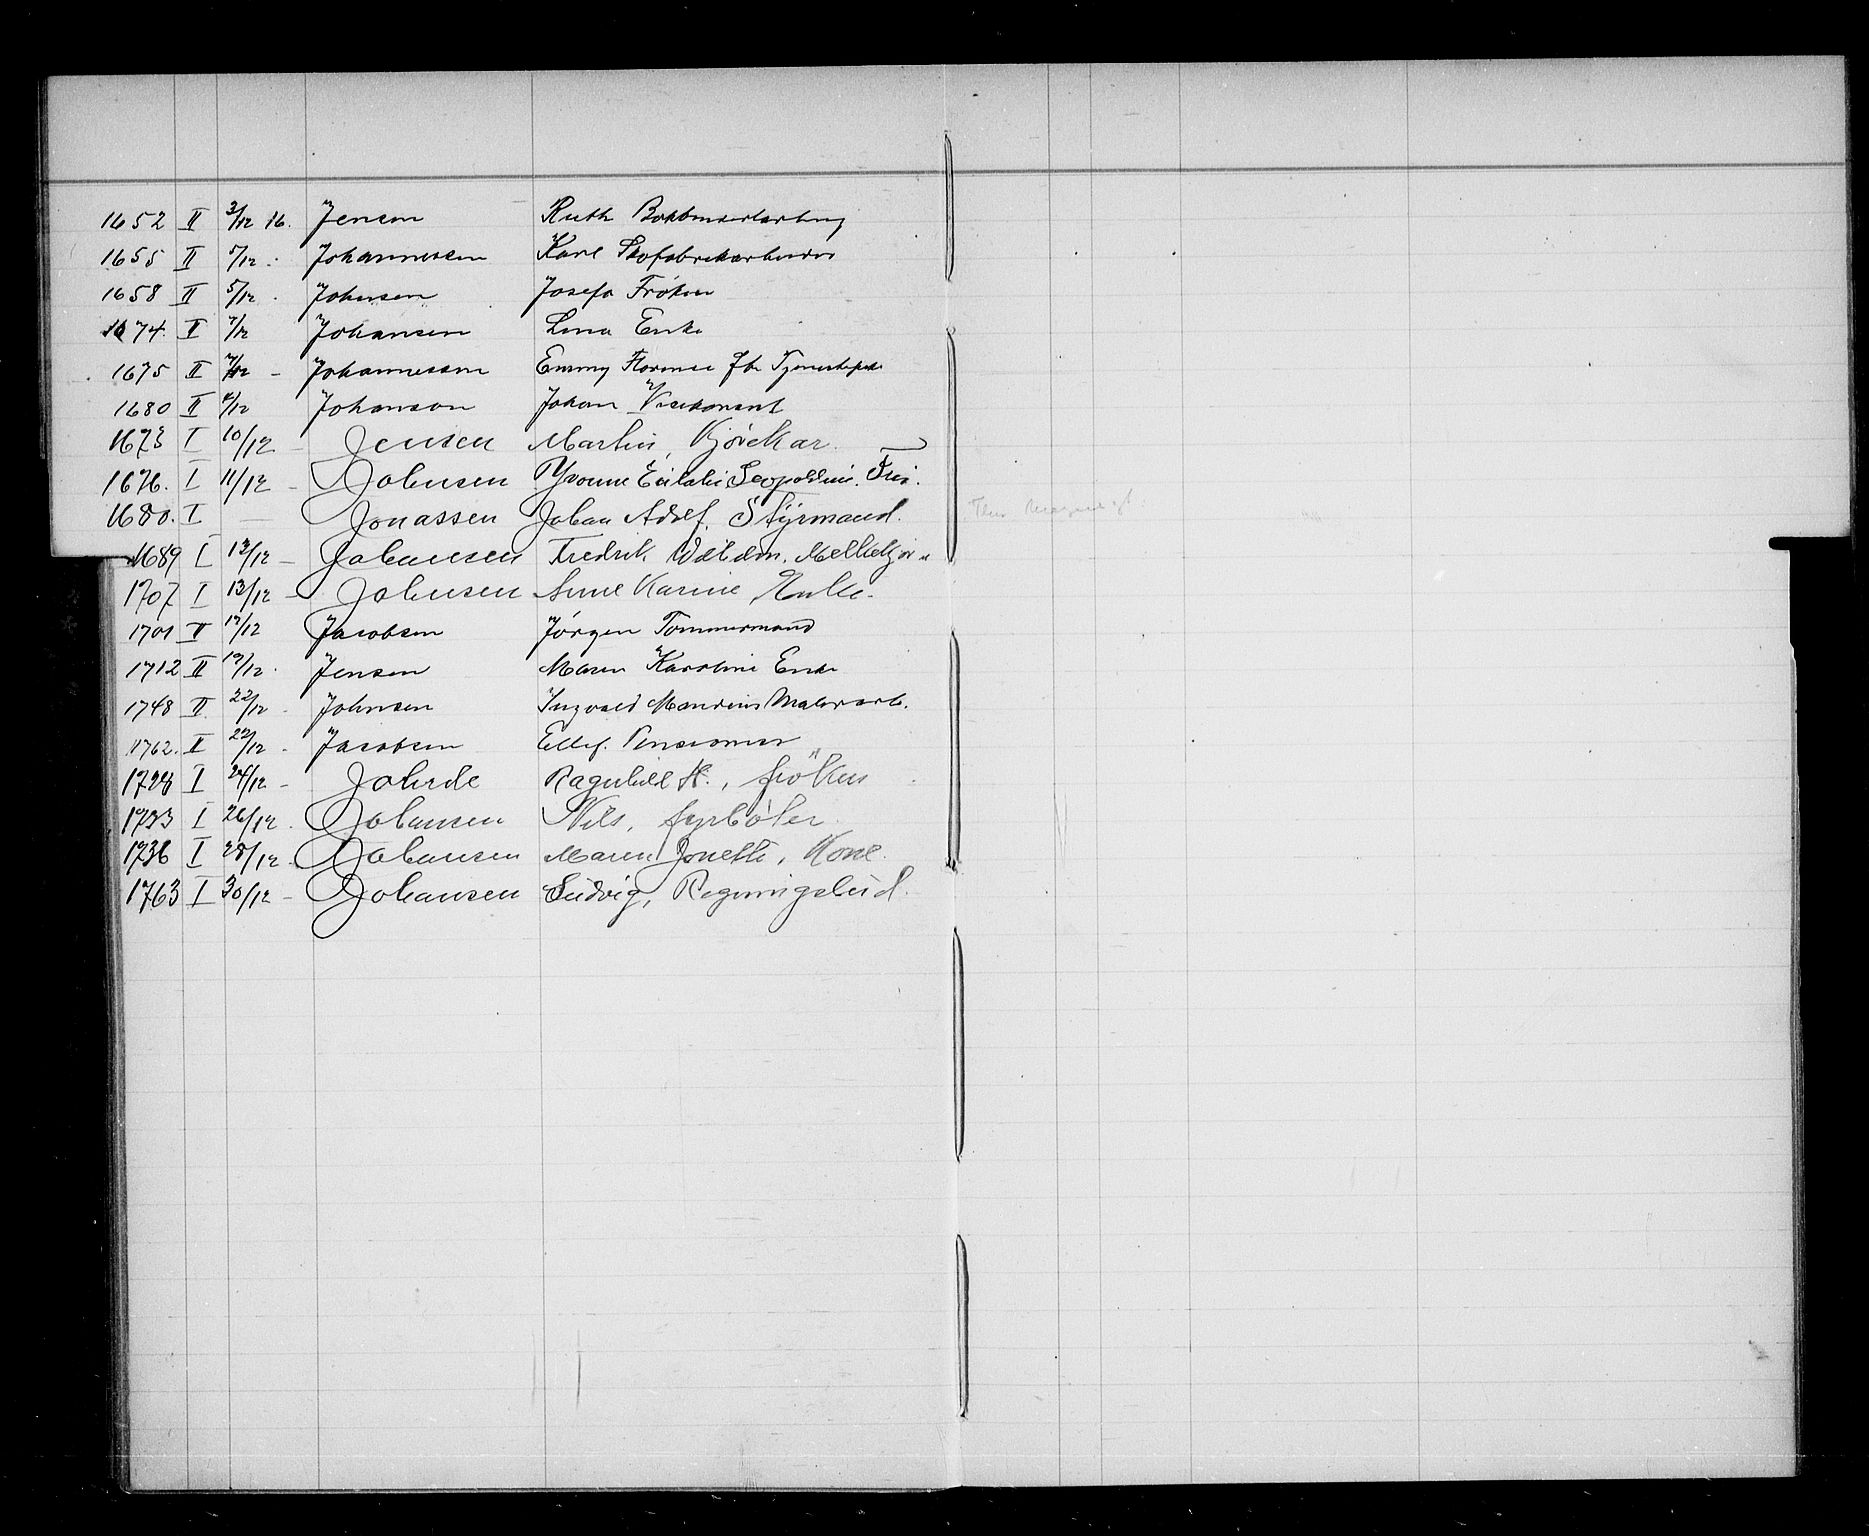 1652 II 3/12 16. Jensen Ruth
1655 II 5/12 Johannessen Karl Skofabrikarbeider
1658 II 5/12 Johnsen Josefa Frøken
1674 II 7/12 Johansen Lina Enke
1675 II 7/12 - Johannessen Emmy Florence Tjenestepike
1680 II Johanson Johan
1673 I 10/12 - Jensen Martin, Kjørekar.
1676. I 11/12 - Johnsen Yvonne Eulalie Leopoldine. Frue.
1680. I — Jonassen Johan Adolf. Styrmand.
1689 I 12/12 - Johansen Fredrik Wilhelm.
1707 I 13/12 - Johnsen Anne Karine, Enke.
1701 II Jacobsen Jørgen Tømmermand
1712 II Jensen Maren Karoline Enke
1748 II 22/12 - Johnsen Ingvald Maurius Malerarb.
1762. II 22/12 - Jacobsen Ellef. Pensioner
1728 I 24/12 - Johrde Ragnhild H., frøken
1733 I 26/12. Johansen Nils, fyrbøter.
1736 I 28/12. Johansen Maren Jonette, Kone.
1763 I 30/12 - Johansen Ludvig, Regningsbud.